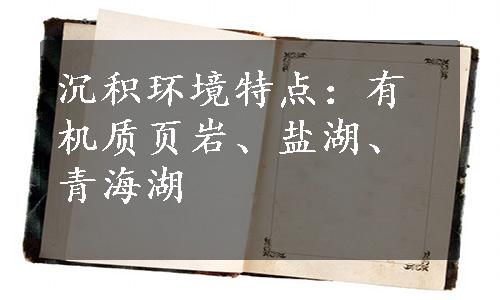 沉积环境特点：有
机质页岩、盐湖、
青海湖